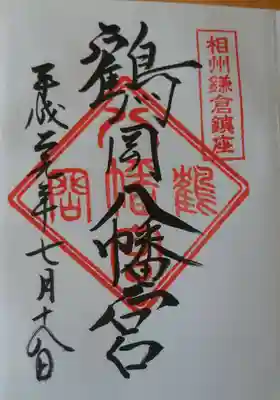 相州鎌倉鎮座
鶴岡八幡宮
鶴岡八幡宮
平成二九年七月十八日